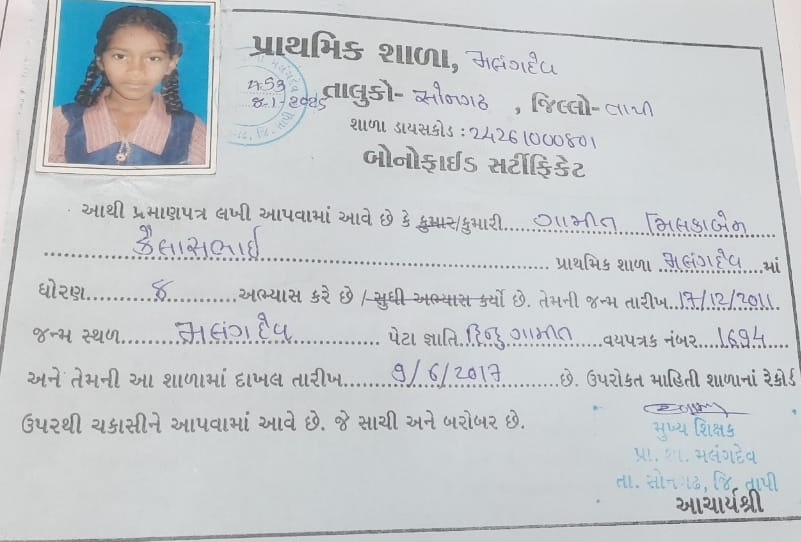 પ્રાથમિક શાળા, મલંગદેવ
તાલુકો- સોનગઢ , જિલ્લો- તાપી
શાળા ડાયસકોડ : 24261000801
બોનોફાઈડ સર્ટીફિકેટ
આથી પ્રમાણપત્ર લખી આપવામાં આવે છે કે કુમાર/કુમારી.....ગામીત મિલકાબેન
કૈલાસભાઈ પ્રાથમિક શાળા મલંગદેવ માં
ધોરણ.......8.......અભ્યાસ કરે છે /સુધી અભ્યાસ કર્યો છે. તેમની જન્મ તારીખ 17/12/2011
જન્મ સ્થળ.....મલંગદેવ..... પેટા જ્ઞાતિ.હિન્દુ ગામીત...વયપત્રક નંબર...1694
અને તેમની આ શાળામાં દાખલ તારીખ.....9/6/2017.....છે. ઉપરોકત માહિતી શાળાનાં રેકોર્ડ
ઉપરથી ચકાસીને આપવામાં આવે છે. જે સાચી અને બરોબર છે.
મુખ્ય શિક્ષક
પ્રા. શા. મલંગદેવ
તા. સોનગઢ, જિ. તાપી
આચાર્યશ્રી